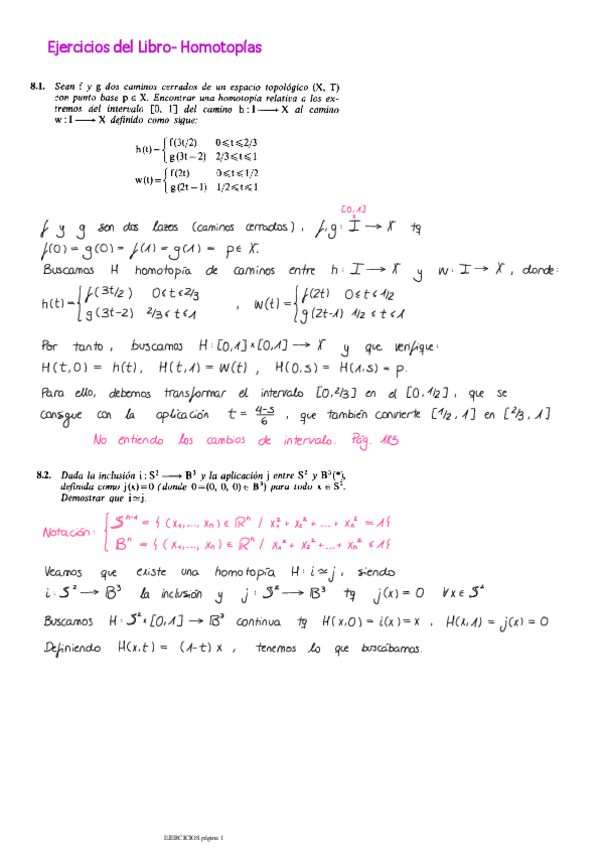 Ejercicios del Libro- Homotopías
8.1. Sean f y g dos caminos cerrados de un espacio topológico (X, T)
con punto base p ∈ X. Encontrar una homotopía relativa a los ex-
tremos del intervalo [0, 1] del camino h : I ⟶ X al camino
w : I ⟶ X definido como sigue:
h(t) = { f(3t/2) 0⩽t⩽2/3
g(3t−2) 2/3⩽t⩽1
w(t) = { f(2t) 0⩽t⩽1/2
g(2t−1) 1/2⩽t⩽1
[0,1]
f y g son dos lazos (caminos cerrados), f,g: I → X tq
f(0) = g(0) = f(1) = g(1) = p ∈ X.
Buscamos H homotopía de caminos entre h: I → X y w: I → X, donde:
h(t) = { f(3t/2) 0≤t≤2/3 , w(t) = { f(2t) 0≤t≤1/2
g(3t-2) 2/3≤t≤1 g(2t-1) 1/2≤t≤1
Por tanto, buscamos H: [0,1]×[0,1] → X y que verifique:
H(t,0) = h(t), H(t,1) = w(t), H(0,s) = H(1,s) = p.
Para ello, debemos transformar el intervalo [0,2/3] en el [0,1/2], que se
consigue con la aplicación t = 4-s/6, que también convierte [1/2,1] en [2/3,1]
No entiendo los cambios de intervalo. Pág. 185
8.2. Dada la inclusión i : S² ⟶ B³ y la aplicación j entre S² y B³(*),
definida como j(x)=0 (donde 0=(0, 0, 0) ∈ B³) para todo x ∈ S².
Demostrar que i≃j.
Notación: { Sⁿ⁻¹ = { (x₁,..., xₙ) ∈ ℝⁿ / x₁² + x₂² + ... + xₙ² = 1 }
Bⁿ = { (x₁,..., xₙ) ∈ ℝⁿ / x₁² + x₂² + ... + xₙ² ≤ 1 }
Veamos que existe una homotopía H: i ≃ j, siendo
i: S² → B³ la inclusión y j: S² → B³ tq j(x) = 0 ∀x ∈ S²
Buscamos H: S²×[0,1] → B³ continua tq H(x,0) = i(x) = x, H(x,1) = j(x) = 0
Definiendo H(x,t) = (1-t) x, tenemos lo que buscábamos.
EJERCICIOS página 1